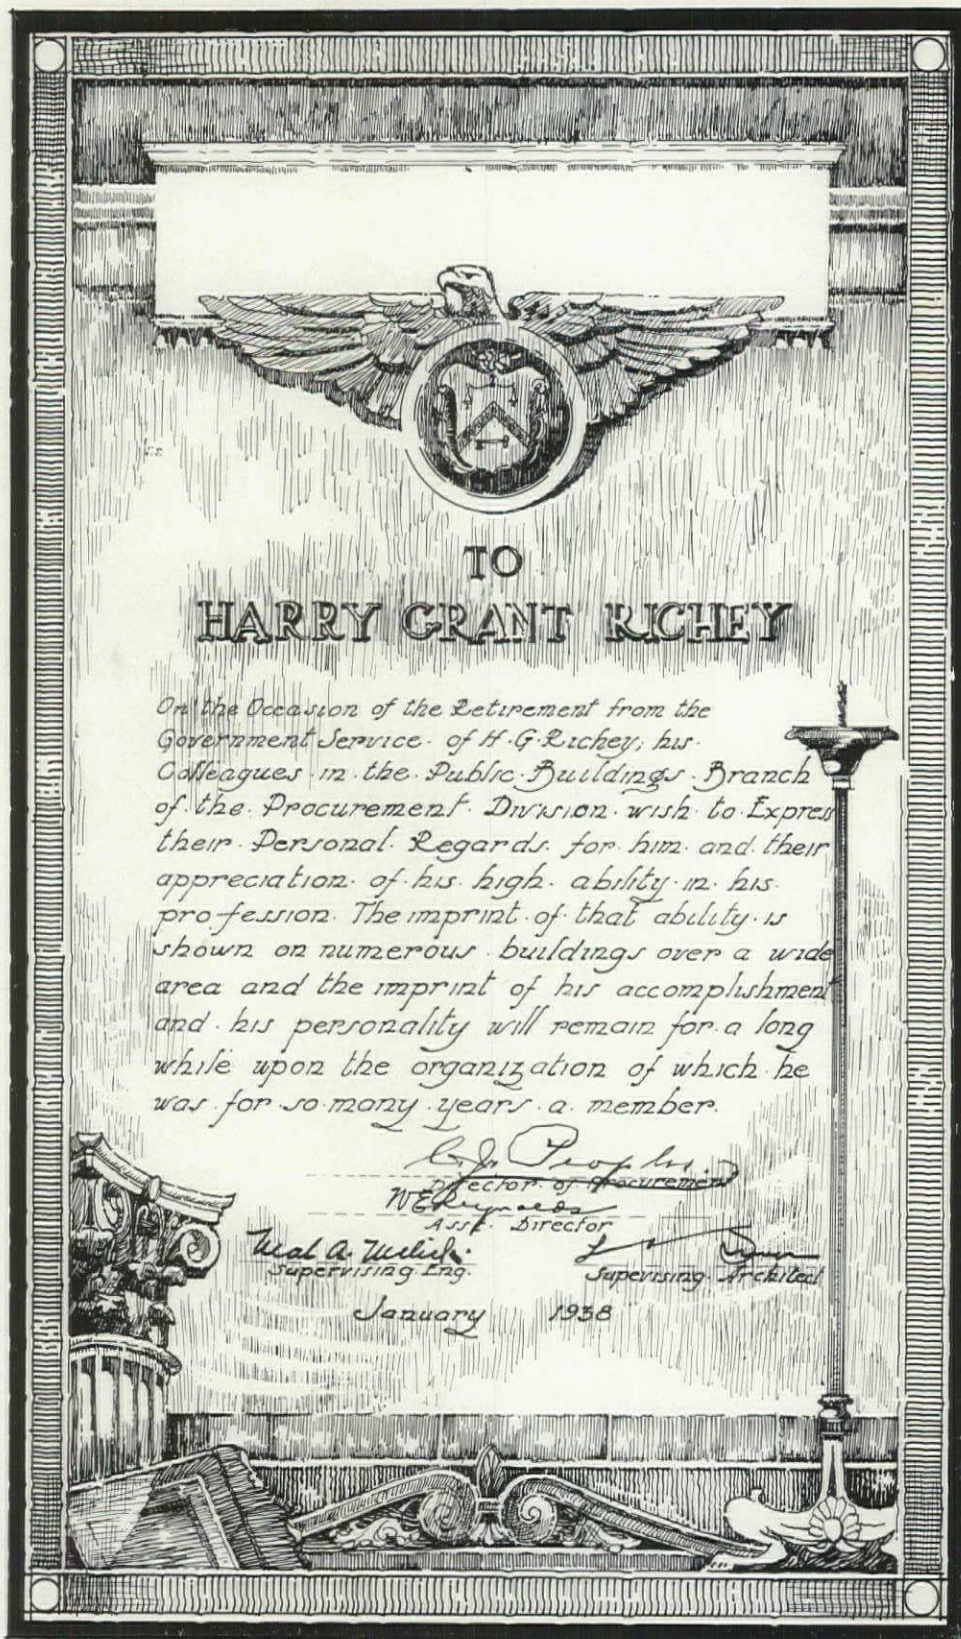 TO
HARRY GRANT RICHEY
On the Occasion of the Retirement from the
Government Service. of H.G. Richey, his.
Colleagues in the Public Buildings Branch
of the Procurement Division wish to Express
their Personal Regards for him and their
appreciation of his high ability in his
profession. The imprint of that ability is
shown on numerous buildings over a wide
area and the imprint of his accomplishment
and his personality will remain for a long
while upon the organization of which he
was for so many years a member.
C.J. Peoples.
Director of Procurement
W E Reynolds
Asst. Director
Neal A. Melick.
Supervising Eng.
Supervising Architect
January 1938